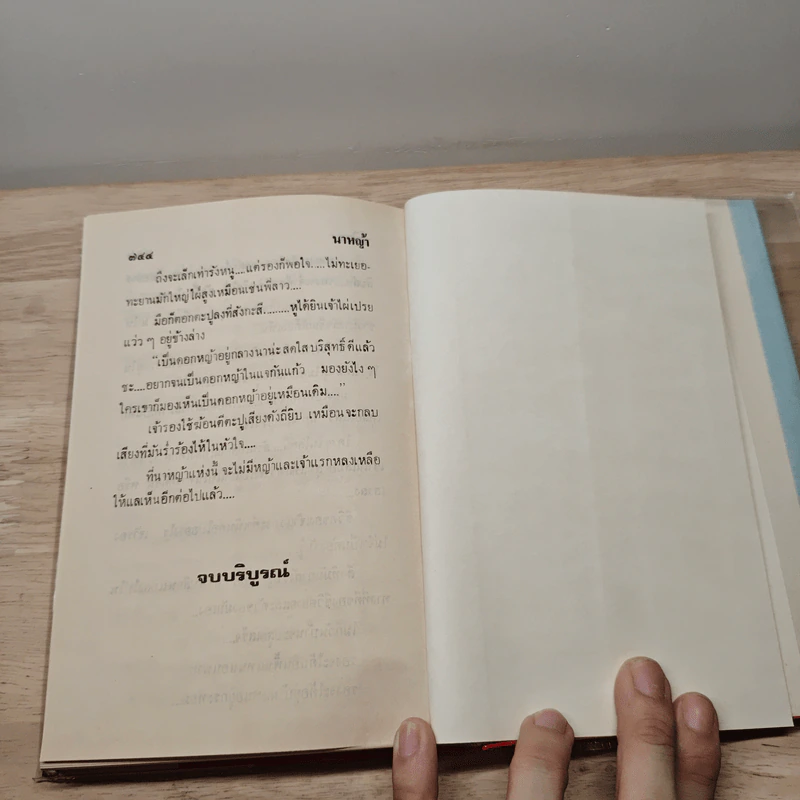 ๓๔๔ นาหญ้า
ถึงจะเล็กเท่ารังหนู....แต่รองก็พอใจ.....ไม่ทะเยอ-
ทะยานมักใหญ่ใฝ่สูงเหมือนเช่นพี่ลาว....
มือก็ตอกตะปูลงที่สังกะสี.........หูได้ยินเจ้าไผ่เปรย
แว่ว ๆ อยู่ข้างล่าง
“เป็นดอกหญ้าอยู่กลางนาน่ะสดใสบริสุทธิ์ดีแล้ว
ชะ....อยากจนเป็นดอกหญ้าในแจกันแก้ว มองยังไง ๆ
ใครเขาก็มองเห็นเป็นดอกหญ้าอยู่เหมือนเดิม....”
เจ้ารองใช้ฆ้อนตีตะปูเสียงดังถี่ยิบ เหมือนจะกลบ
เสียงที่มันร่ำร้องไห้ในหัวใจ....
ที่นาหญ้าแห่งนี้ จะไม่มีหญ้าและเจ้าแรกหลงเหลือ
ให้แลเห็นอีกต่อไปแล้ว....
จบบริบูรณ์